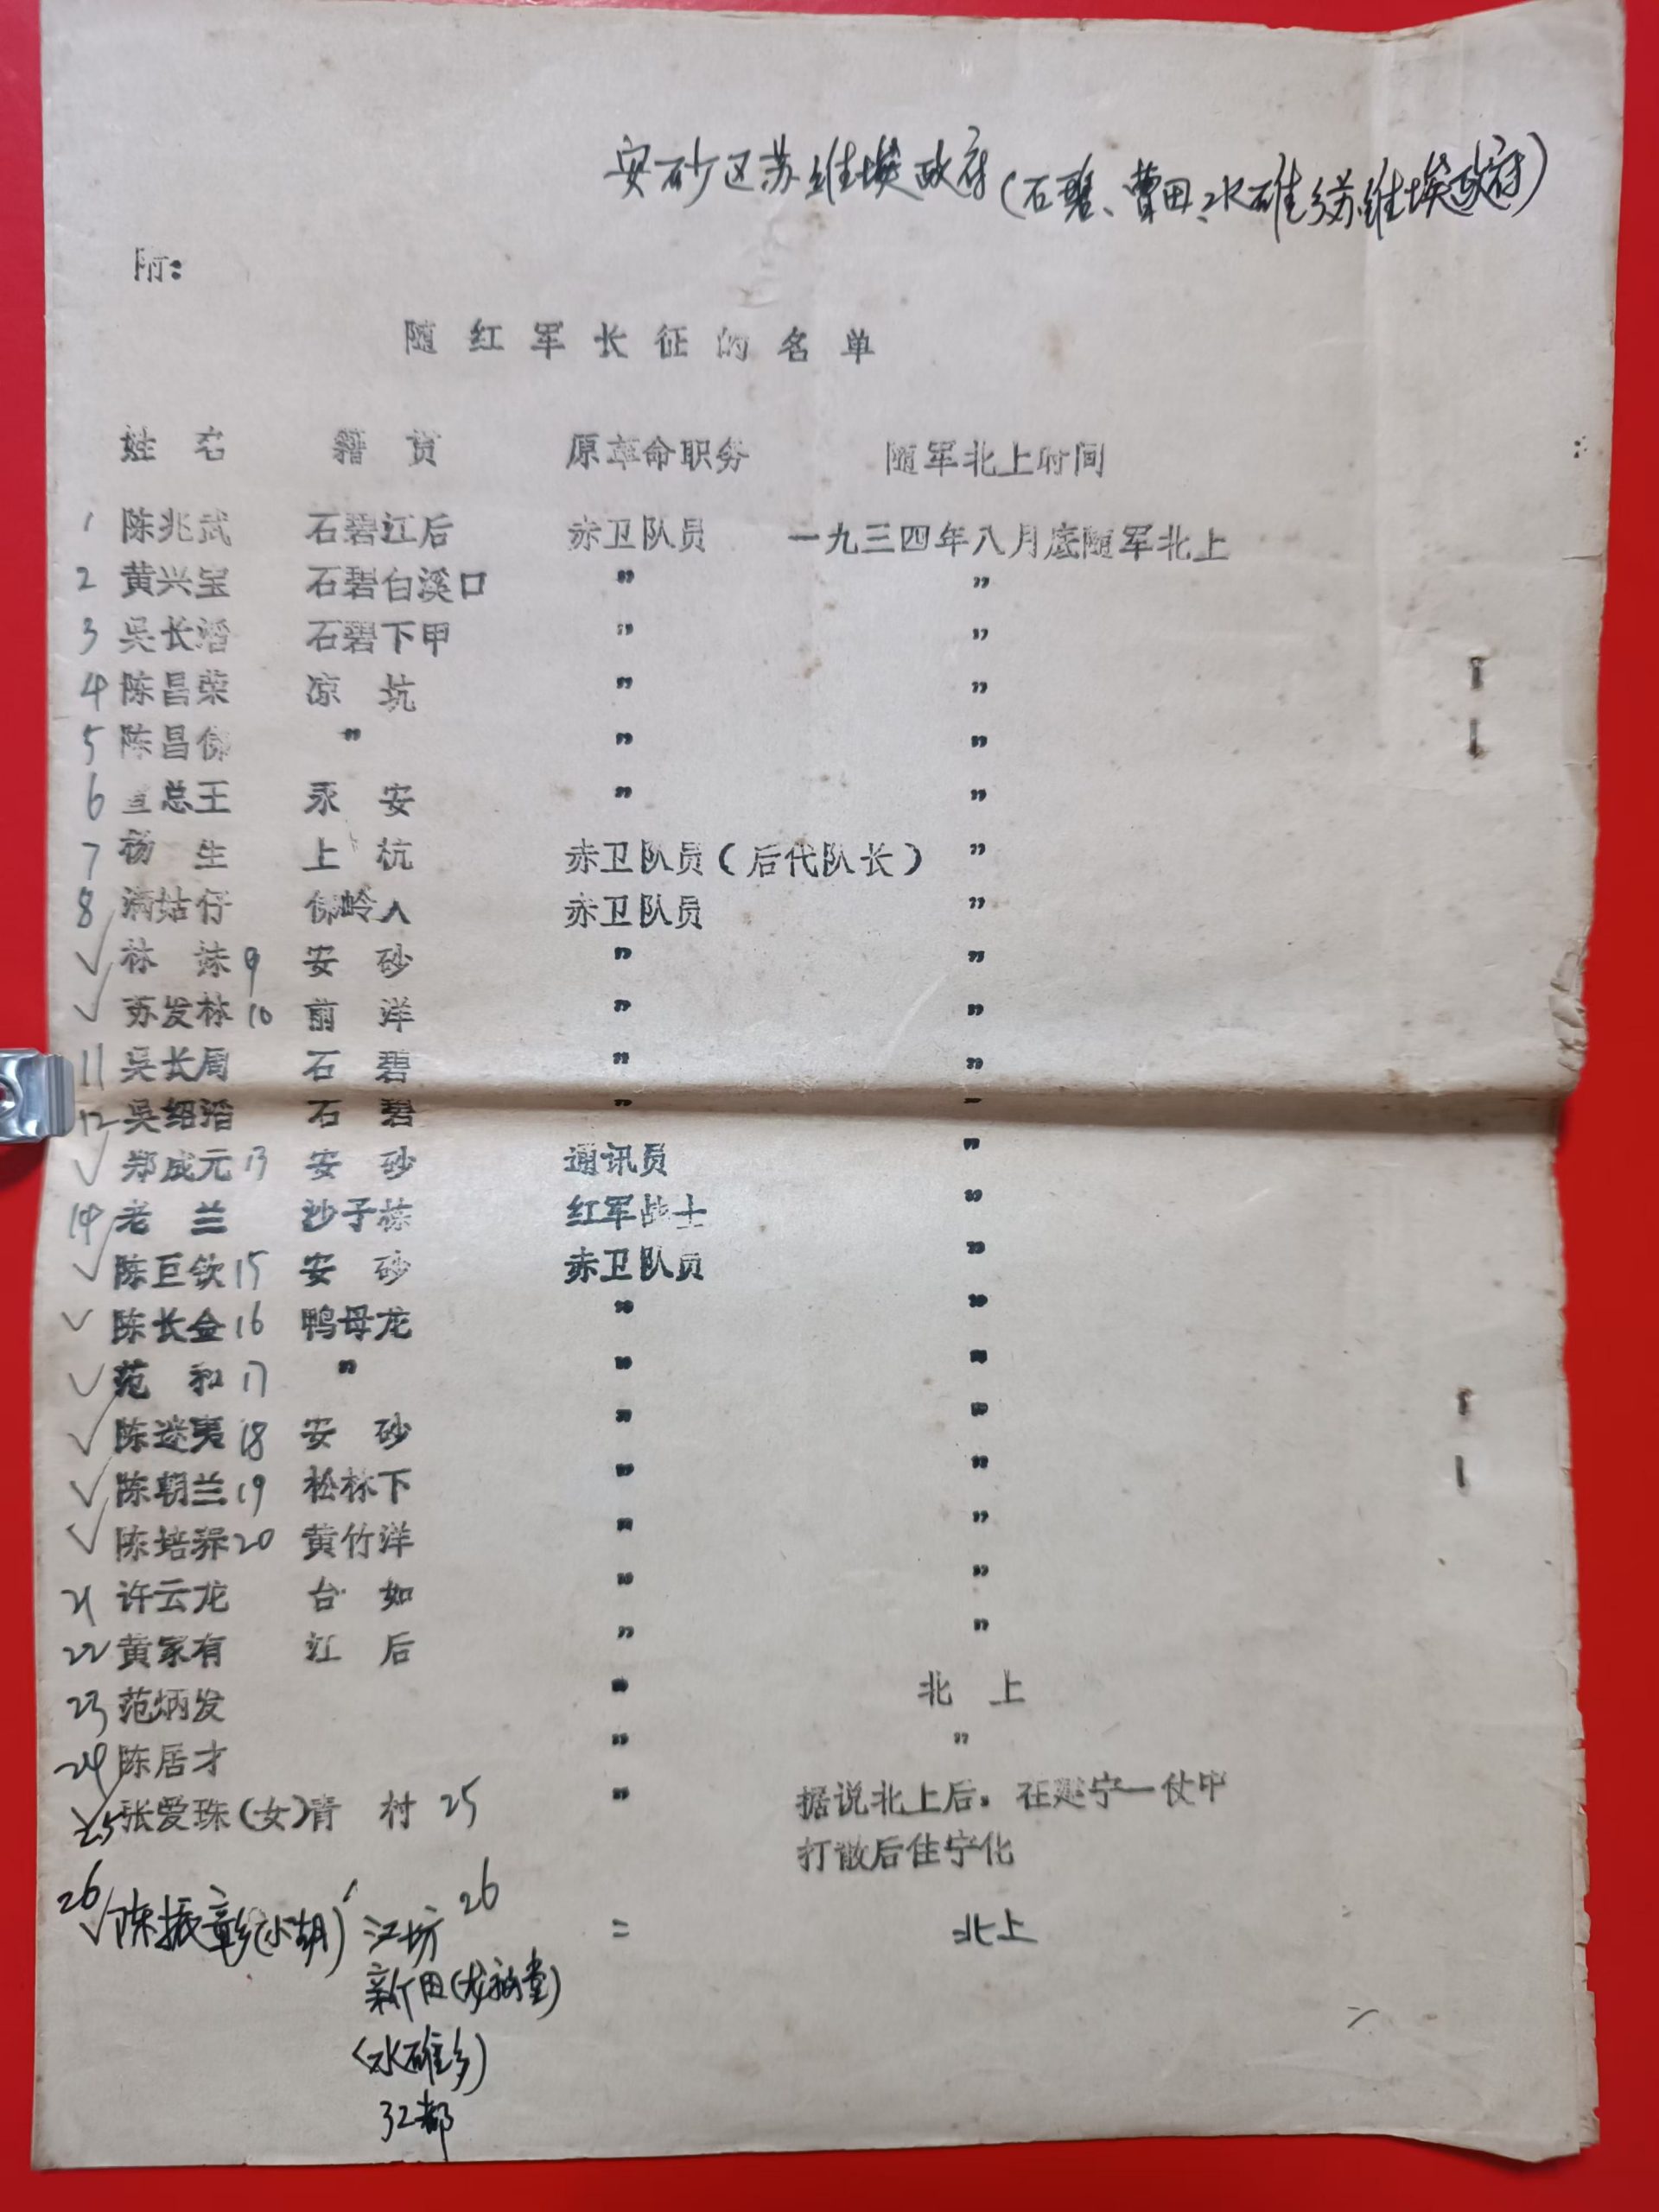 安砂区苏维埃政府(石碧、曹田、水碓乡苏维埃政府)
附:
随红军长征的名单
姓名 籍贯 原革命职务 随军北上时间
1 陈兆武 石碧江后 赤卫队员 一九三四年八月底随军北上
2 黄兴宝 石碧白溪口 〃 〃
3 吴长潘 石碧下甲 〃 〃
4 陈昌荣 凉坑 〃 〃
5 陈昌佛 〃 〃 〃
6 总王 永安 〃 〃
7 杨生 上杭 赤卫队员(后代队长) 〃
8 满姑仔 佛岭人 赤卫队员 〃
✓ 林妹 9 安砂 〃 〃
✓ 苏发林 10 前洋 〃 〃
11 吴长周 石碧 〃 〃
12 吴绍潘 石碧 〃 〃
✓ 郑成元 13 安砂 通讯员 〃
14 老兰 沙子栋 红军战士 〃
✓ 陈巨钦 15 安砂 赤卫队员 〃
✓ 陈长金 16 鸭母龙 〃 〃
✓ 范和 17 〃 〃 〃
✓ 陈逆夷 18 安砂 〃 〃
✓ 陈朝兰 19 松林下 〃 〃
✓ 陈培养 20 黄竹洋 〃 〃
21 许云龙 台如 〃 〃
22 黄家有 江后 〃 〃
23 范炳发 〃 北上
24 陈居才 〃 〃
25 张爱珠(女) 青村 25 〃 据说北上后,在建宁一仗中
打散后住宁化
26 ✓ 陈振彰(小胡) 江坊 26 = 北上
新田(龙福堂)
(水碓乡)
32都